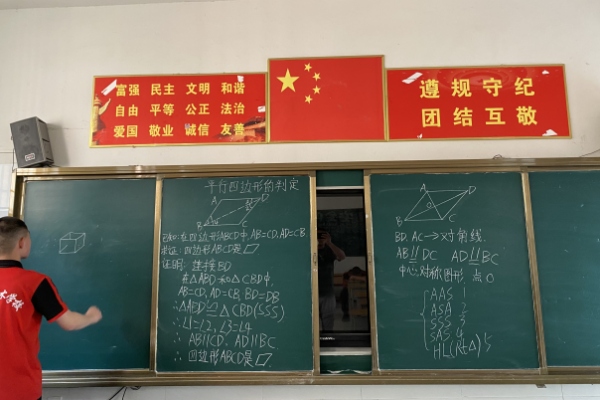 富强 民主 文明 和谐
自由 平等 公正 法治
爱国 敬业 诚信 友善
遵规守纪
团结互敬
平行四边形的判定
A D
B C
已知:在四边形ABCD中,AB=CD,AD=CB
求证:四边形ABCD是▱
证明:连接BD
在△ABD和△CBD中
AB=CD,AD=CB,BD=DB
∴△ABD≌△CBD(SSS)
∴∠1=∠2,∠3=∠4
∴AB∥CD.AD∥BC
∴四边形ABCD是▱.
A D
O
B C
BD.AC→对角线.
AB⫫DC AD⫫BC
中心对称图形,点O
AAS 1
ASA 2
SSS 3
SAS 4
HL(Rt△)5